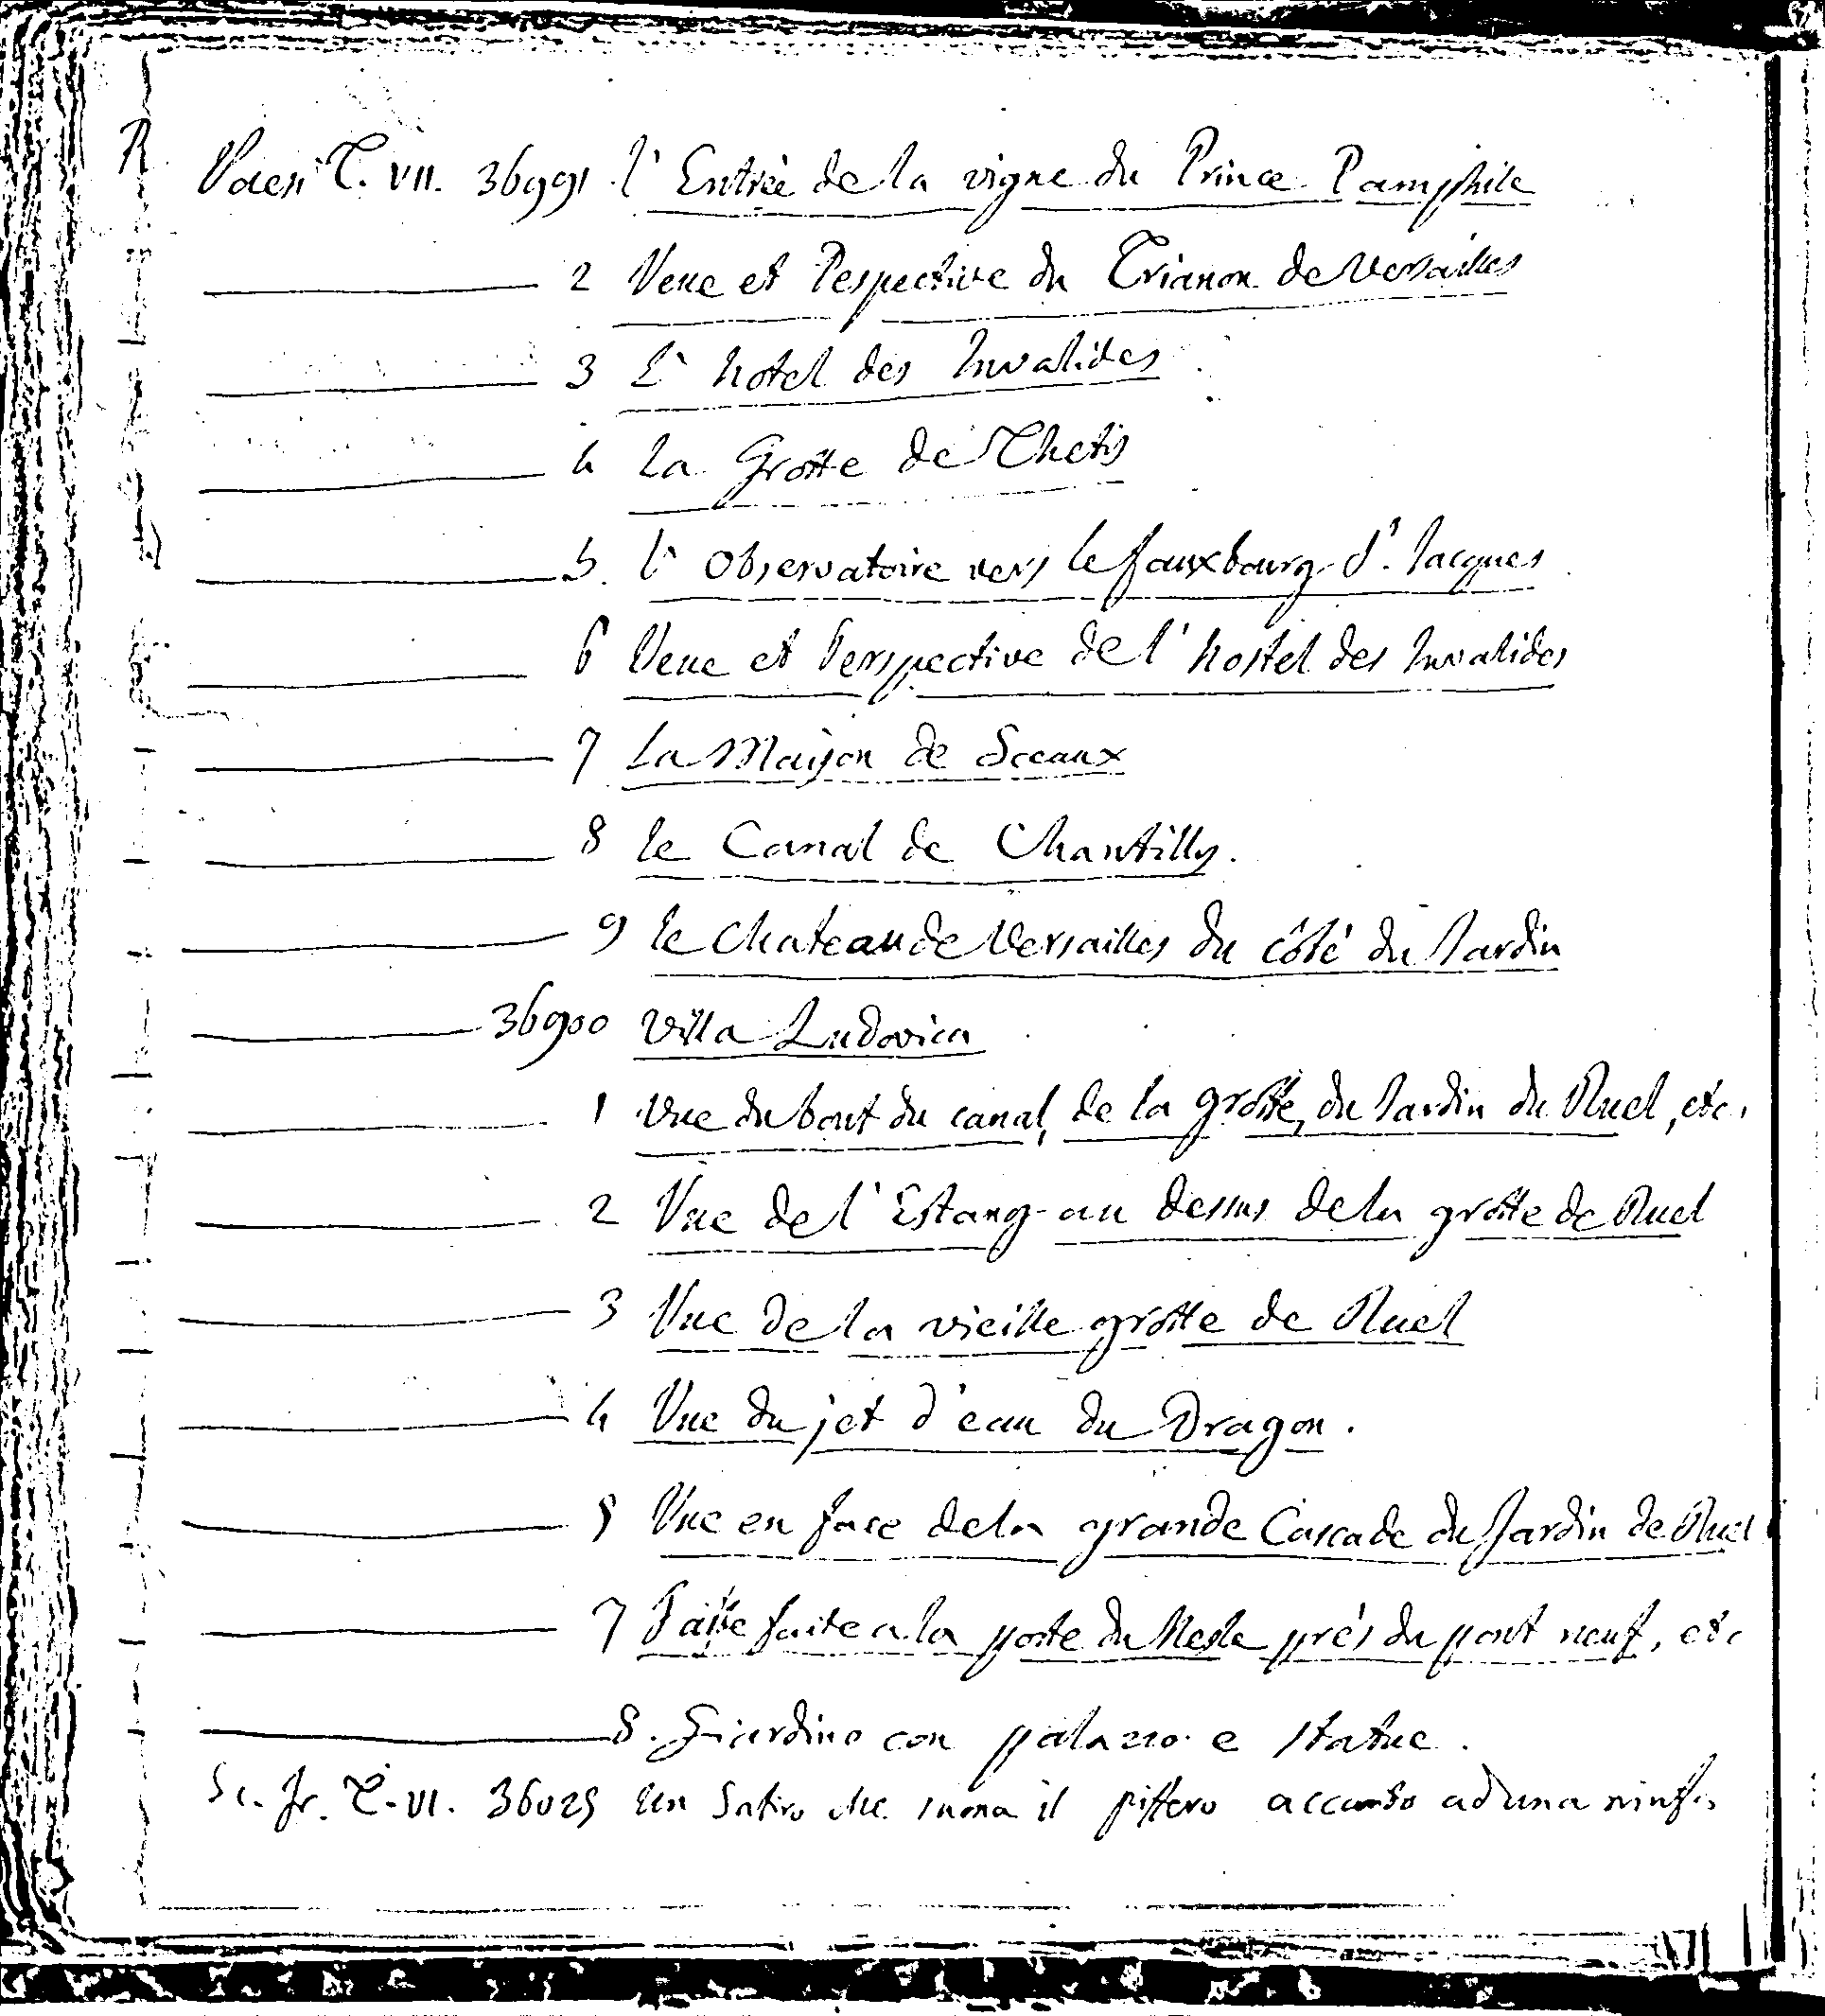 R
Paesi T. VII. 36991 l'Entrée de la vigne du Prince Pamphile
2 Veue et Pespective du Trianon de Versailles
3 L' hotel des Invalides
4 La Grotte de Thetis
5. l' Observatoire vers le fauxbourg St. Jacques
6 Veue et Perspective de l' hostel des Invalides
7 La Maison de Sceaux
8 le Canal de Chantilly.
9 le Chateau de Versailles du côté du Jardin
36900 Villa Ludovica
1 Vue du bout du canal, de la grotte, du Jardin du Ruel, etc.
2 Vue de l' Estang au dessus de la grotte de Ruel
3 Vue de la vieille grotte de Ruel
4 Vue du jet d'eau du Dragon.
5 Vue en face de la grande Cascade du Jardin de Ruel
7 faite a la porte du Nesle prés du pont neuf, etc
8. Giardino con palazzo e statue.
Sc. fr. T. VI. 36025 Un Satiro che suona il piffero accanto ad una ninfa